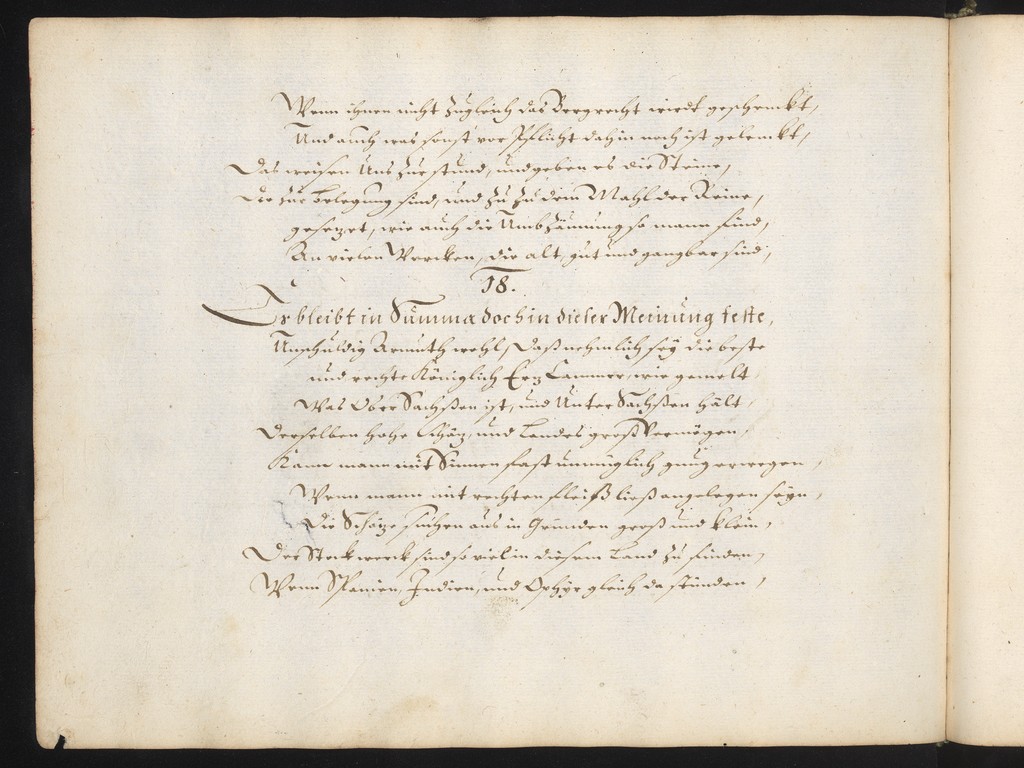 Wenn ihnen nicht zugleich das Bergrecht wirdt geschenckt,
Und auch was sonst vor Pflicht dahin noch ist gelenckt,
Das weisen Uns zur stund, und geben es die Steine,
Die zur belegung sind, und zu zu dem Mahl der Reine,
gesezet, wie auch die Umbzäunung so mann find,
An vielen Wercken, die alt, gut und gangbar sind,
18.
Es bleibt in Summa doch in dieser Meinung feste,
Unschuldig Armuth wohl, Daß nehmlich sey die beste
und rechte Königlich Erz Cammer, wie gemelt
Was Ober Sachßen ist, und Unter Sachßen hält
Derselben hohe Schäz, und Landes groß Vermögen,
Kann mann mit Sinnen fast unmüglich gnug erwegen,
Wenn mann mit rechten fleiß ließ angelegen seyn,
Die Schäze suchen aus in Gründen groß und klein,
Der Stockwerck sind so viel in diesem Land zu finden,
Wenn Spanien, Indien, und Ophyr gleich da stünden,